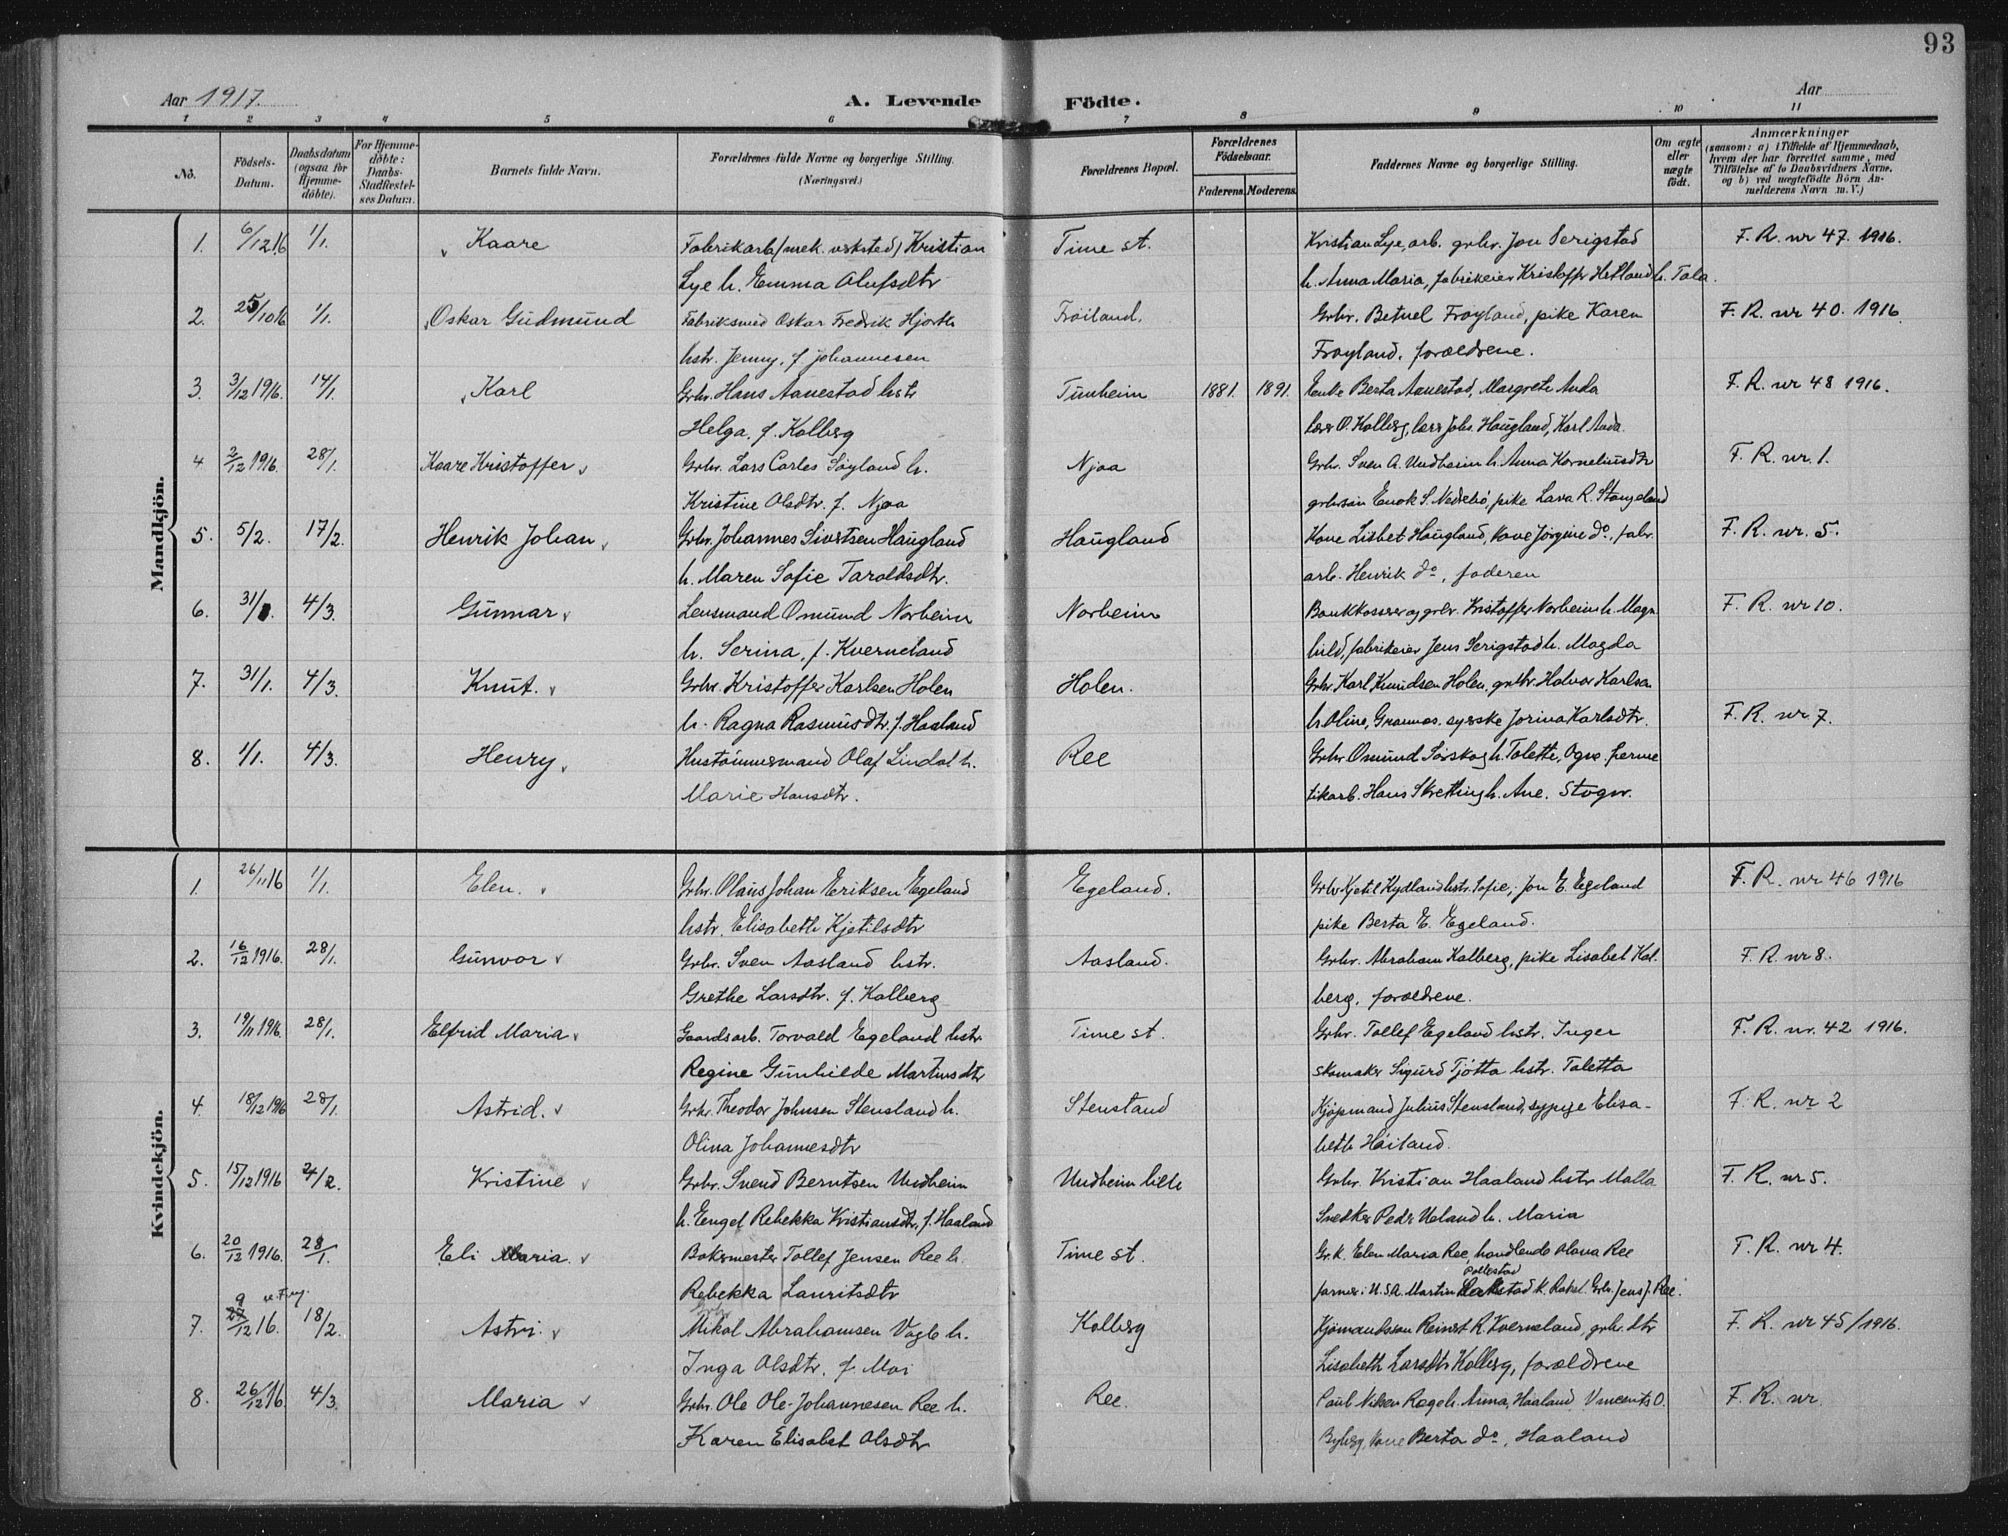 93
Aar 1917.
A. Levende Födte.
Aar
1 2 3 4 5 6 7 8 9 10 11
No.
Födsels-Datum.
Daabsdatum (ogsaa for Hjemme-döbte).
For Hjemme-döbte: Daabs-Stadfæstel-ses Datum.
Barnets fulde Navn.
Forældrenes fulde Navne og borgerlige Stilling. (Næringsvei.)
Forældrenes Bopæl.
Forældrenes Födselsaar.
Faderens. Moderens.
Faddernes Navne og borgerlige Stilling.
Om ægte eller uægte födt.
Anmærkninger (saasom: a) i Tilfælde af Hjemmedaab, hvem der har forrettet samme, med Tilföielse af to Daabsvidners Navne, og b) ved uægtefödte Börn An-melderens Navn m. V.)
Mandkjön.
1. 6/12 16 1/1. Kaare Fabrikarb. (mek. verksted) Kristian Time st. Kristian Lye, arb. grbr. Jon Serigstad F. R. nr 47. 1916.
Lye h. Emma Olufsdtr h. Anna Maria, fabrikeier Kristoffer Hetland h. Tala.
2. 25/10 16 1/1. Oskar Gudmund Fabriksmed Oskar Fredrik Hjorth Frøiland. Grbr. Betuel Frøyland, pike Karen F. R. nr 40. 1916.
hstr. Jenny, f. Johannesen Frøyland, forældrene.
3. 3/12 1916. 14/1. Karl Grbr. Hans Aanestad hstr Tunheim 1881. 1891. Enke Berta Aanestad, Margrete Anda F. R. nr 48 1916.
Helga, f. Kalberg Lærer O. Kalberg, lærer Johs. Haugland, Karl Anda.
4. 2/12 1916. 28/1. Kaare Kristoffer Grbr. Lars Carles Søyland h. Njaa Grbr. Sven A. Undheim h. Anna Korneliusdtr F. R. nr. 1.
Kristine Olsdtr. f. Njaa grbrsøn Enok S. Nedrebø, pike Lava R. Stangeland
5. 5/2. 17/2. Henrik Johan Grbr. Johannes Sivertsen Haugland Haugland Kone Lisbet Haugland, kone Jørgine do, fabr. F. R. nr. 5.
h. Maren Sofie Taroldsdtr. arb. Henrik do, faderen
6. 31/1. 4/3. Gunnar Lensmand Omund Norheim Norheim Bankkasserer og grbr. Kristoffer Norheim h. Magn F. R. nr 10.
h. Serina, f. Kverneland hild, fabrikeier Jens Serigstad h. Magda
7. 31/1. 4/3. Knut. Grbr. Kristoffer Karlsen Holen Holen. Grbr. Karl Knudsen Holen, grbr. Halvor Karlsen
h. Ragna Rasmusdtr, f. Haaland h. Oline, Grannes. syerske Jorina Karlsdtr. F. R. nr 7.
8. 1/1. 4/3. Henry Hustømmermand Olaf Lindal h. Ree Grbr. Omund Sørskog h. Talette, Ogna.
Marie Hansdtr. Hans Skretting h. Ane.
Kvindekjön.
1. 26/11 16 1/1. Elen. Grbr. Olaus Johan Eriksen Egeland Egeland. Grbr Kjetil Kydland hstr. Sofie, Jon E. Egeland F. R. nr 46 1916
hstr. Elisabeth Kjetilsdtr pike Berta E. Egeland.
2. 16/12 1916. 28/1. Gunvor Grbr. Sven Aasland hstr. Aasland. Grbr. Abraham Kalberg, pike Lisabet Kal- F. R. nr 8.
Grethe Larsdtr. f. Kalberg berg, forældrene.
3. 19/11 1916 28/1. Elfrid Maria Gaardsarb. Torvald Egeland hstr. Time st. Grbr. Tollef Egeland hstr. Inger F. R. nr. 42 1916.
Regine Gunhilde Martinsdtr skomaker Sigurd Tjøtta hstr. Taletta
4. 18/12 1916 28/1. Astrid. Grbr. Theodor Johnsen Stensland h. Stensland Kjøpmand Julius Stensland, sypige Elisa- F. R. nr 2
Olina Johannesdtr beth Høiland.
5. 15/12 1916 4/2. Kristine Grbr. Svend Berntsen Undheim Undheim lille Grbr. Kristian Haaland hstr. Malla F. R. nr 5.
h. Engel Rebekka Kristiansdtr, f. Haaland Snedker Peder Ueland h. Maria
6. 20/12 1916. 28/1. Eli Maria Baksmester Tollef Jensen Ree h. Time st. Gr.k. Elen Maria Ree, handlende Olava Ree F. R. nr 4.
Rebekka Lauritsdtr farmer i U.S.A. Martin Pollestad h. Rakel. Grbr. Jens J. Ree.
7. 9/12 16. 18/2. Astri. Grbr Mikal Abrahamsen Vagle h. Kalberg Reinert R. Kverneland, grbr. dtr F. R. nr 45/1916.
Inga Olsdtr. f. Moi Lisabeth Larsdtr Kalberg, forældrene
8. 26/12 16. 4/3. Maria Grbr. Ole Ole-Johannesen Ree h. Ree. Paul Nilsen Rage h. Anna, Haaland, Vincents O. F. R. nr.
Karen Elisabet Olsdtr Byberg, kone Berta do, Haaland